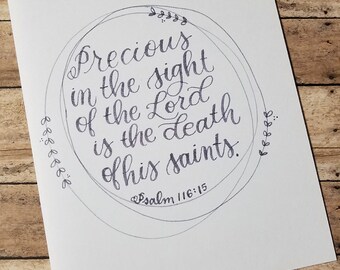 Precious
in the sight
of the Lord
is the death
of his saints.
Psalm 116:15